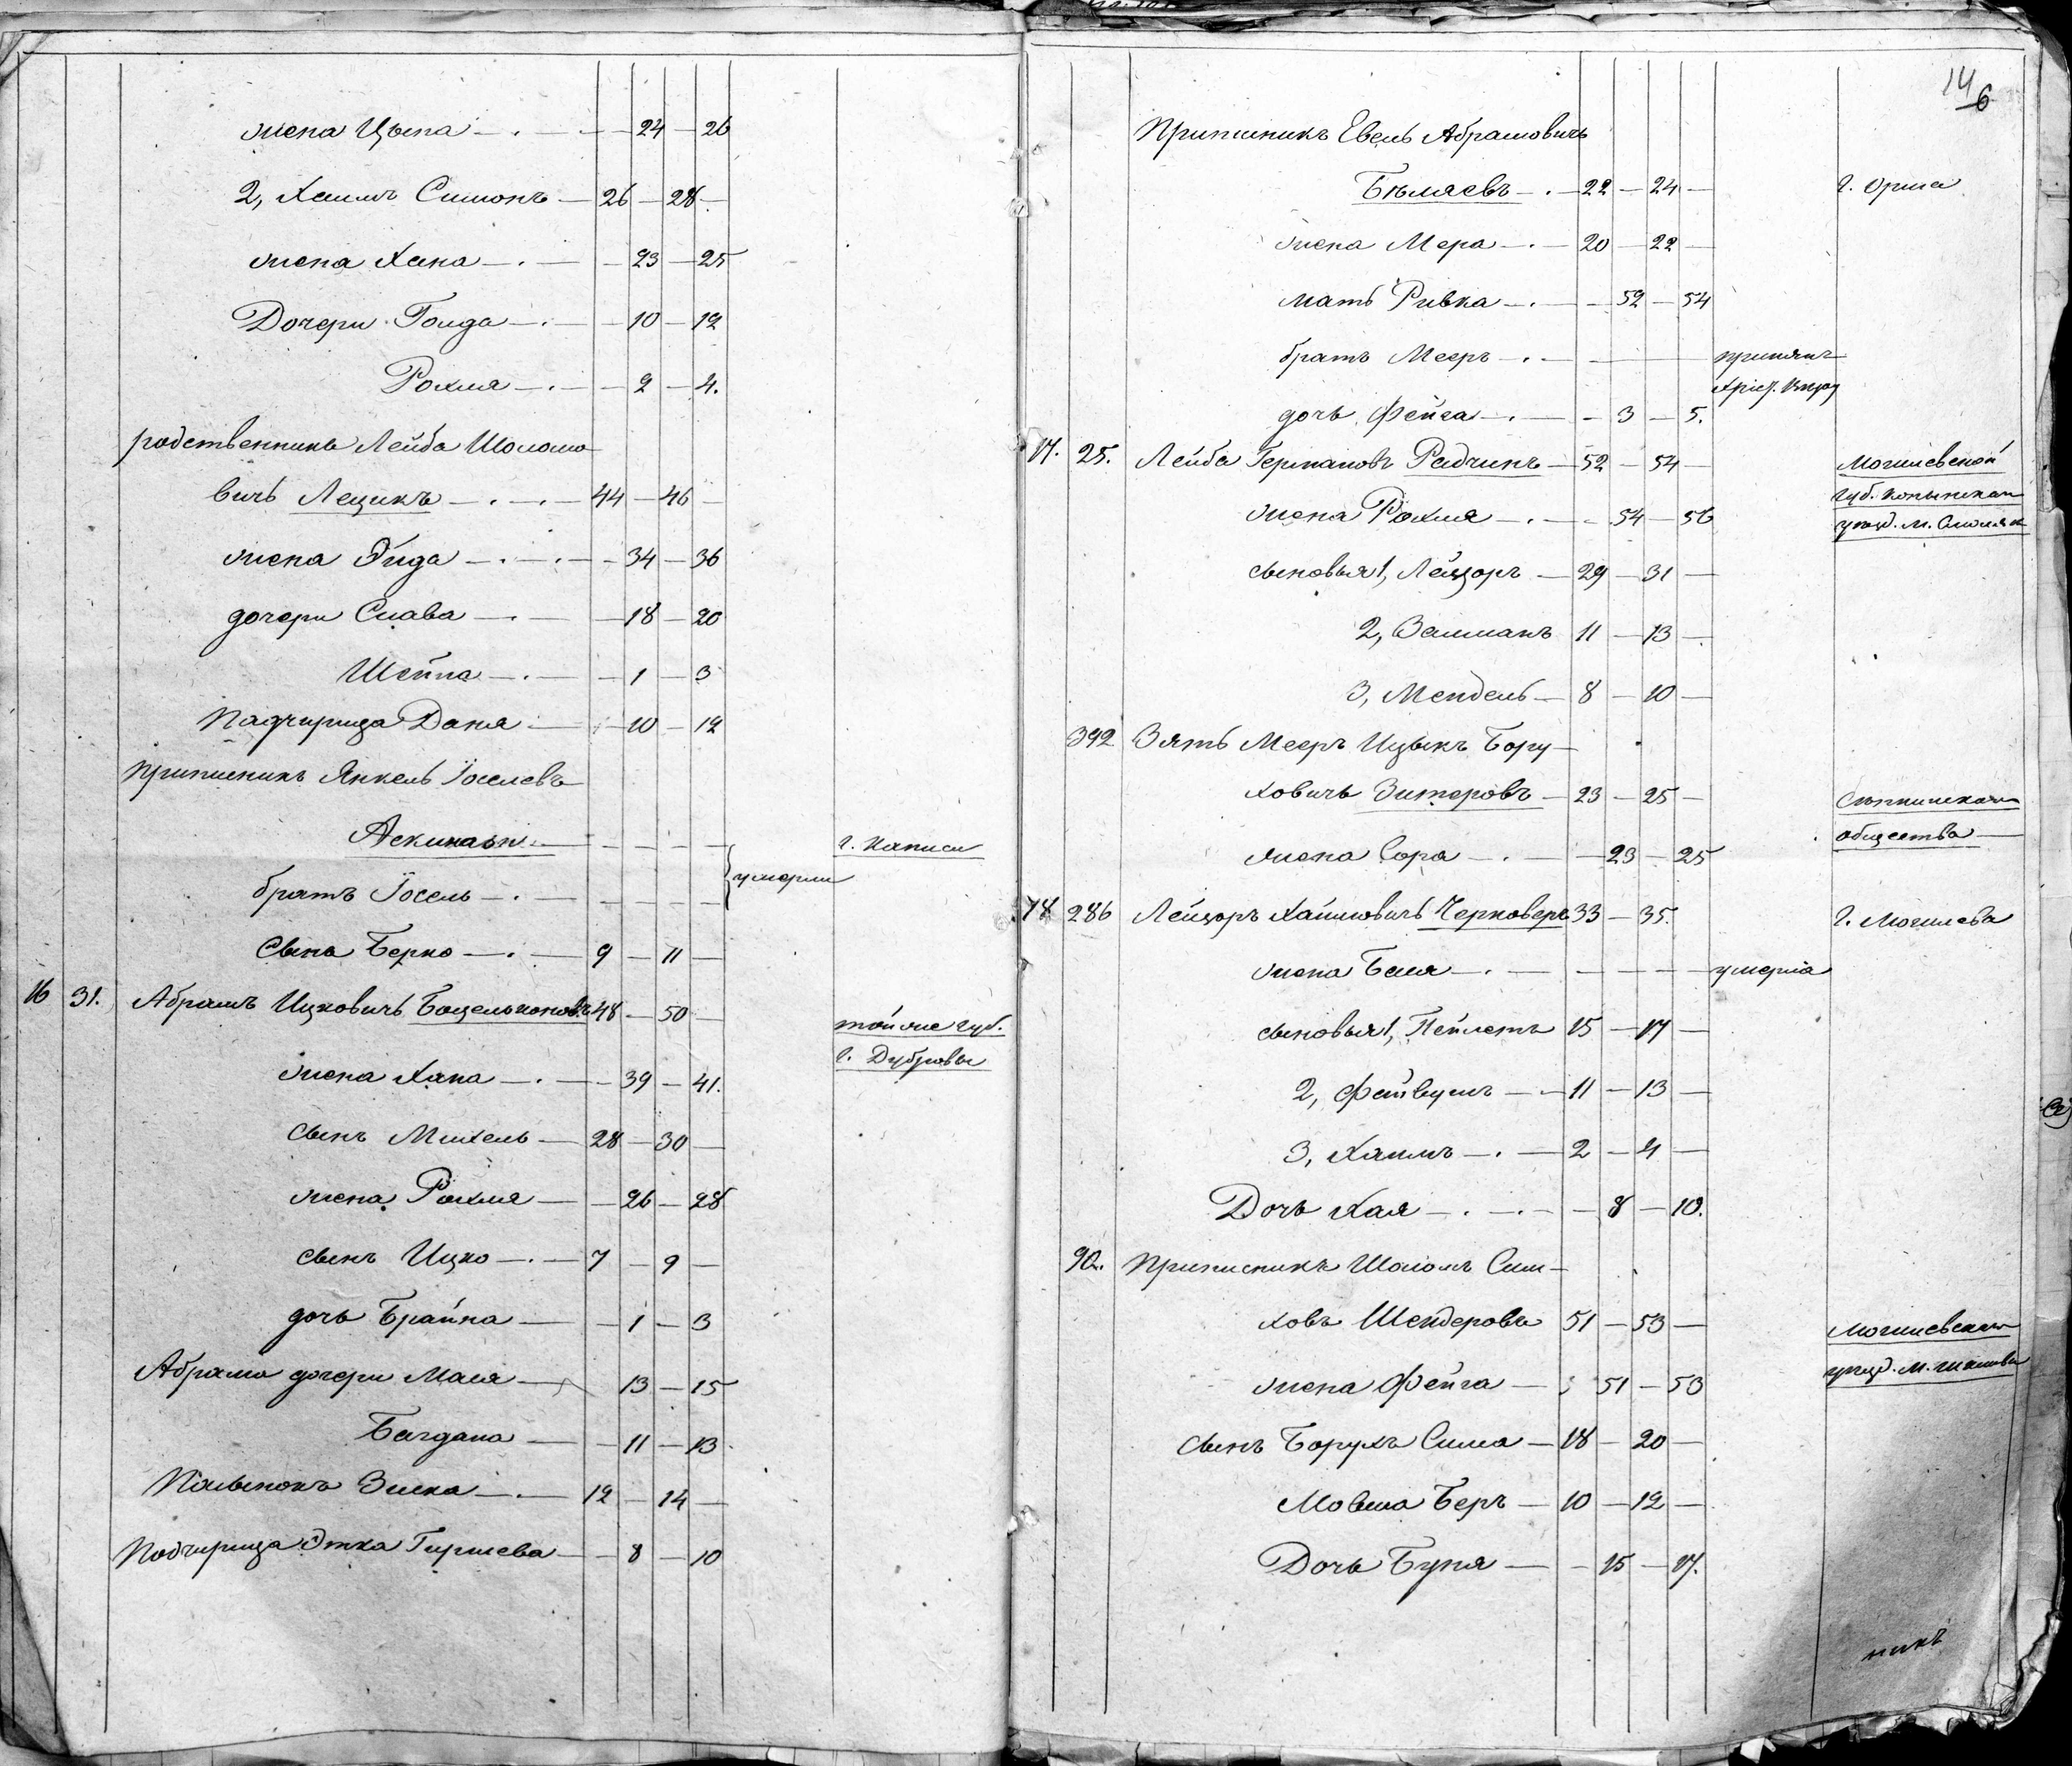 жена Цыпа — 24 — 26
2, Хаимъ Симонъ — 26 — 28
жена Хана — 23 — 25
Дочери Голда — 10 — 12
Рохля — 2 — 4.
родственникъ Лейба Шоломо
вичъ Лещикъ — 44 — 46
жена Эйда — 34 — 36
дочери Слава — 18 — 20
Шейна — 1 — 3
Падчирица Даня — 10 — 12
Приписникъ Янкель Іоселевъ
г. Каписи
братъ Іосель — умерли
Сынъ Берко — 9 — 11
16 31. Абрамъ Ицковичъ 48 — 50
тойже губ.
г. Дубровы
жена Хана — 39 — 41.
сынъ Михель — 28 — 30
жена Рохля — 26 — 28
сынъ Ицко — 7 — 9
дочь Брайна — 1 — 3
Абрама дочери Мася — 13 — 15
Багдана — 11 — 13
Зиска — 12 — 14
Подчирица Этка Гиршева — 8 — 10
14
6
Приписникъ Евель Абрамовичъ
Бѣляевъ — 22 — 24 — г. Орша
жена Мера — 20 — 22
мать Ривка — 52 — 54
братъ Мееръ — принялъ
Хрис.
дочь Фейга — 3 — 5.
17. 25. Лейба Германовъ Радчикъ — 52 — 54 — Могилевской
губ. Копыскаго
жена Рохля — 54 — 56 уѣзд. м.
сыновья 1, Лейзоръ — 29 — 31
2, Залманъ 11 — 13
3, Мендель — 8 — 10
392 Зять Мееръ Ицыкъ Бору-
ховичъ Зитеровъ — 23 — 25
общества
жена Сора — 23 — 25
18 286 Лейзоръ Хаимовичъ 33 — 35. г. Могилева
жена Беля — умерла
сыновья 1, 15 — 17
2, Файвушъ — 11 — 13
3, Хаимъ — 2 — 4
Дочь Хая — 8 — 10.
90. Приписникъ Шоломъ Сим-
ховъ Шендеровъ 51 — 53 — Могилевскаго
уѣзд. м. Шклова
жена Фейга — 51 — 53
сынъ Борухъ Сима — 18 — 20
Мовша Беръ — 10 — 12
Дочь Буня — 15 — 17.
никъ